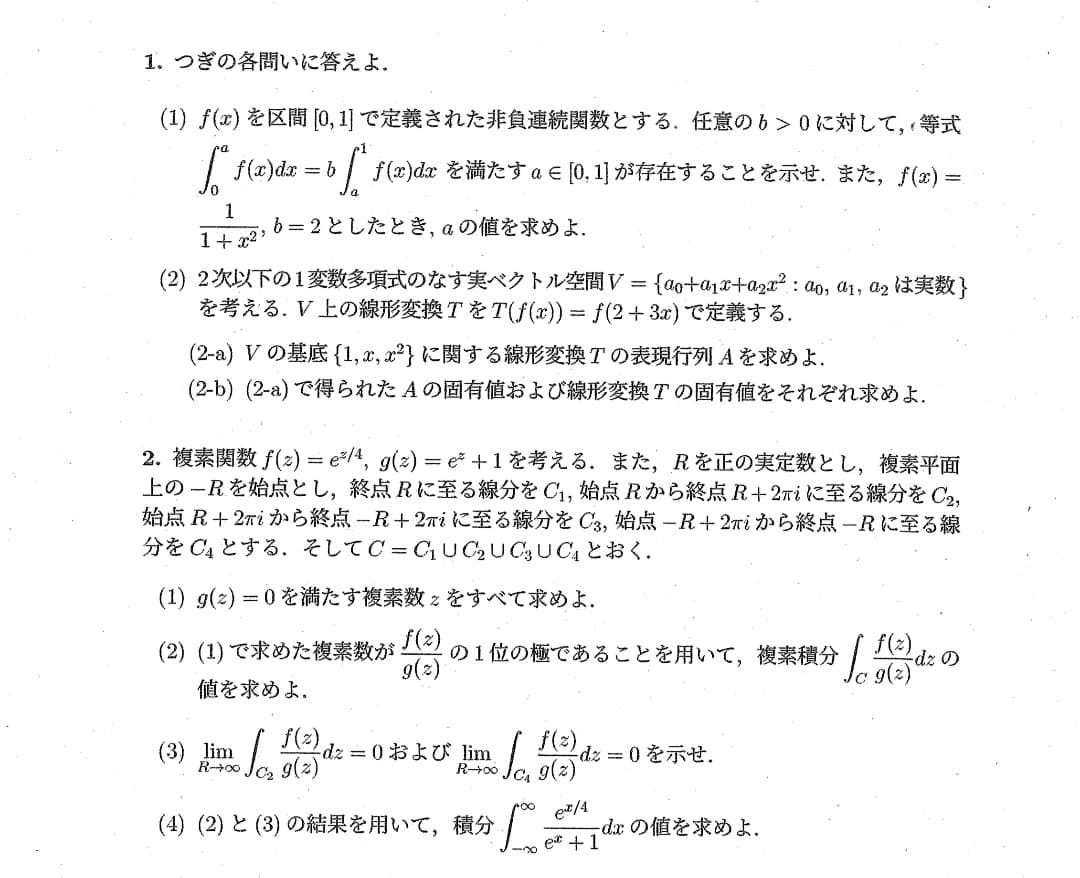 1. つぎの各問いに答えよ.
(1) f(x) を区間 [0, 1] で定義された非負連続関数とする. 任意の b > 0 に対して, 等式
∫_0^a f(x)dx = b ∫_a^1 f(x)dx を満たす a ∈ [0, 1] が存在することを示せ. また, f(x) =
1/(1 + x²), b = 2 としたとき, a の値を求めよ.
(2) 2次以下の1変数多項式のなす実ベクトル空間 V = {a₀+a₁x+a₂x² : a₀, a₁, a₂ は実数}
を考える. V 上の線形変換 T を T(f(x)) = f(2 + 3x) で定義する.
(2-a) V の基底 {1, x, x²} に関する線形変換 T の表現行列 A を求めよ.
(2-b) (2-a) で得られた A の固有値および線形変換 T の固有値をそれぞれ求めよ.
2. 複素関数 f(z) = e^{z/4}, g(z) = e^z + 1 を考える. また, R を正の実定数とし, 複素平面
上の −R を始点とし, 終点 R に至る線分を C₁, 始点 R から終点 R + 2πi に至る線分を C₂,
始点 R + 2πi から終点 −R + 2πi に至る線分を C₃, 始点 −R + 2πi から終点 −R に至る線
分を C₄ とする. そして C = C₁ ∪ C₂ ∪ C₃ ∪ C₄ とおく.
(1) g(z) = 0 を満たす複素数 z をすべて求めよ.
(2) (1) で求めた複素数が f(z)/g(z) の1位の極であることを用いて, 複素積分 ∫_C f(z)/g(z) dz の
値を求めよ.
(3) lim_{R→∞} ∫_{C₂} f(z)/g(z) dz = 0 および lim_{R→∞} ∫_{C₄} f(z)/g(z) dz = 0 を示せ.
(4) (2) と (3) の結果を用いて, 積分 ∫_{−∞}^{∞} e^{x/4}/(e^x + 1) dx の値を求めよ.